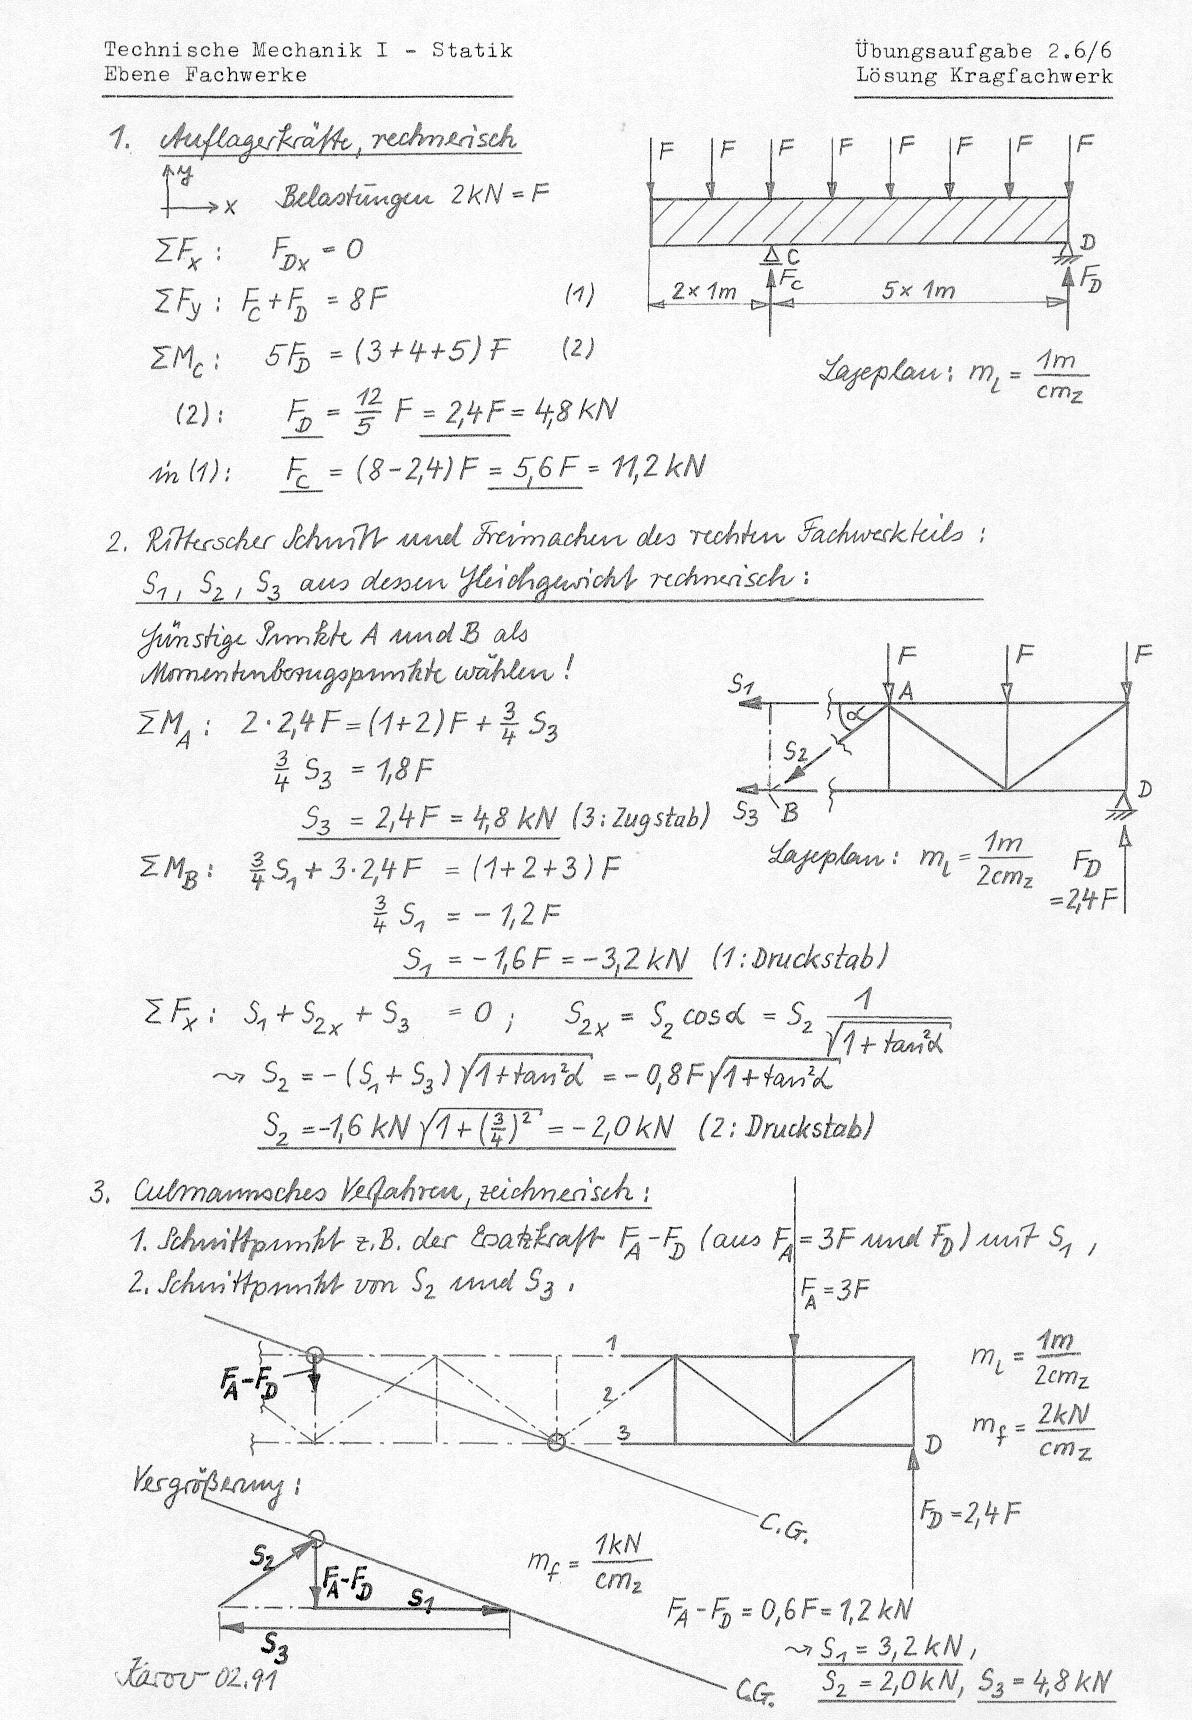 Technische Mechanik I - Statik
Ebene Fachwerke
Übungsaufgabe 2.6/6
Lösung Kragfachwerk
1. Auflagerkräfte, rechnerisch
y
x
Belastungen 2kN = F
ΣFx : FDx = 0
ΣFy : FC + FD = 8F (1)
ΣMC : 5FD = (3+4+5)F (2)
(2): FD = 12/5 F = 2,4F = 4,8kN
in (1): FC = (8-2,4)F = 5,6F = 11,2kN
F F F F F F F F
C D
FC FD
2×1m 5×1m
Lageplan: ml = 1m/cmz
2. Ritterscher Schnitt und Freimachen des rechten Fachwerkteils:
S1, S2, S3 aus dessen Gleichgewicht rechnerisch:
Günstige Punkte A und B als
Momentenbezugspunkte wählen!
ΣMA : 2·2,4F = (1+2)F + 3/4 S3
3/4 S3 = 1,8F
S3 = 2,4F = 4,8kN (3: Zugstab)
ΣMB : 3/4 S1 + 3·2,4F = (1+2+3)F
3/4 S1 = -1,2F
S1 = -1,6F = -3,2kN (1: Druckstab)
F F F
S1 A
α
S2
S3 B D
Lageplan: ml = 1m/2cmz
FD
=2,4F
ΣFx : S1 + S2x + S3 = 0 ; S2x = S2 cosα = S2 1/√(1+tan²α)
⤳ S2 = -(S1+S3)√(1+tan²α) = -0,8F√(1+tan²α)
S2 = -1,6kN√(1+(3/4)²) = -2,0kN (2: Druckstab)
3. Culmannsches Verfahren, zeichnerisch:
1. Schnittpunkt z.B. der Ersatzkraft FA-FD (aus FA=3F und FD) mit S1,
2. Schnittpunkt von S2 und S3.
FA=3F
1
2
3
FA-FD
D
ml = 1m/2cmz
mf = 2kN/cmz
C.G.
FD=2,4F
Vergrößerung:
S2
FA-FD
S1
S3
mf = 1kN/cmz
C.G.
FA-FD = 0,6F = 1,2kN
⤳ S1 = 3,2kN,
S2 = 2,0kN, S3 = 4,8kN
02.91